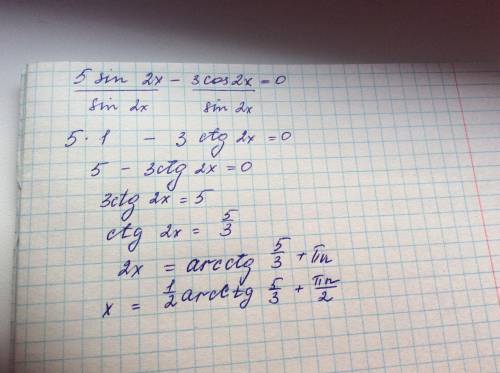 5 sin 2x - 3cos2x = 0
sin 2x sin 2x
5 · 1 - 3 ctg 2x = 0
5 - 3ctg 2x = 0
3ctg 2x = 5
ctg 2x = 5/3
2x = arcctg 5/3 + πn
x = 1/2 arcctg 5/3 + πn/2